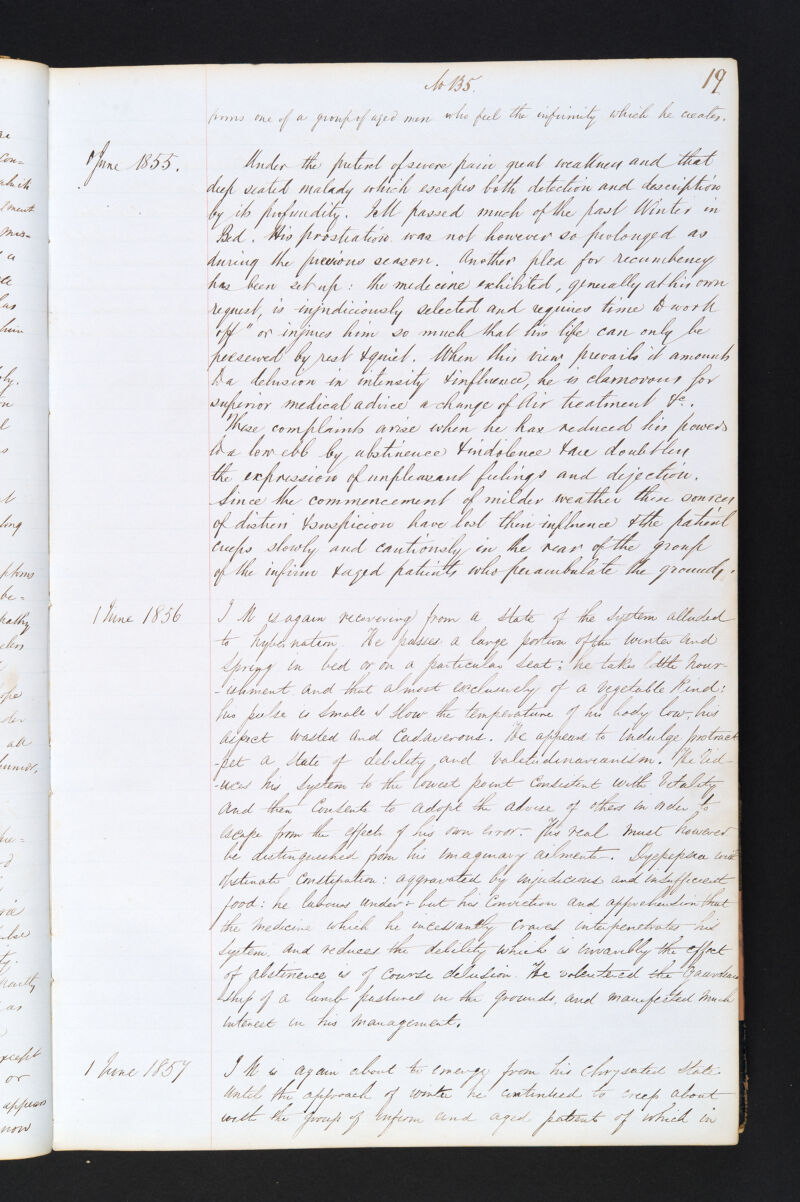 No 135.
19
forms one of a group of aged men who feel the infirmity which he creates.
1 June 1855.
Under the pretext of severe pain great weakness and that
deep seated malady which escapes both detection and description
by its profundity. passed much of the past Winter in
Bed. His prostration was not however so prolonged as
during the previous season. Another plea for recumbency
has been set up: the medicine exhibited, generally at his own
request, is injudiciously selected and requires time to work
off" or injures him so much that his life can only be
preserved by rest & quiet. When this view prevails it amounts
to a delusion in intensity & influence, he is clamorous for
superior medical advice a change of Air treatment &c.
These complaints arise when he has reduced his powers
to a low ebb by abstinence & indolence & are doubtless
the expression of unpleasant feelings and dejection.
Since the commencement of milder weather these sources
of distress & suspicion have lost their influence & the patient
creeps slowly and cautiously in the rear of the group
of the infirm & aged patients who perambulate the grounds.
1 June 1856
J M is again recovering from a state of the system alluded
to hybernation. He passes a large portion of the winter and
spring in bed or on a particular seat: he takes little nour-
-ishment and that almost exclusively of a vegetable kind:
his pulse is small & slow the temperature of his body low, his
aspect wasted and cadaverous. He appears to indulge protract
-pet a state of debility and valetudinarianism. He red-
-uces his system to the lowest point consistent with vitality
and then consents to adopt the advise of others in order to
escape from the effects of his own error. His real must however
be distinguished from his imaginary ailments. Dyspepsia with
obstinate constipation: aggravated by injudicious and insufficient
food: he labours under: but his conviction and apprehension that
the medicine which he incessantly craves interpenetrates his
system and reduces the debility which is invariably the effect
of abstinence is of course delusion. He volentered the Guardian
ship of a lamb pastured in the grounds, and manifested much
interest in his management.
1 June 1857
J M is again about to emerge from his chrysated state.
Until the approach of winter he continued to creep about
with the group of infirm and aged patients of which in